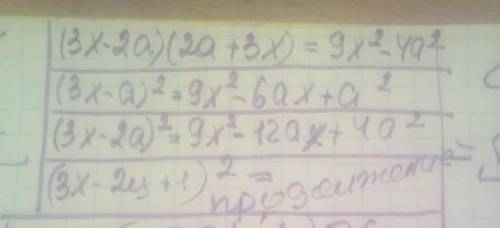 (3x-2a)(2a+3x) = 9x²-4a²
(3x-a)² = 9x²-6ax+a²
(3x-2a)² = 9x²-12ax+4a²
(3x-2y+1)² = продолжение